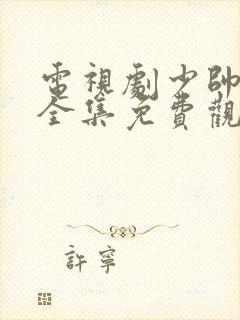 電視劇少帥
全集免費觀
許寧